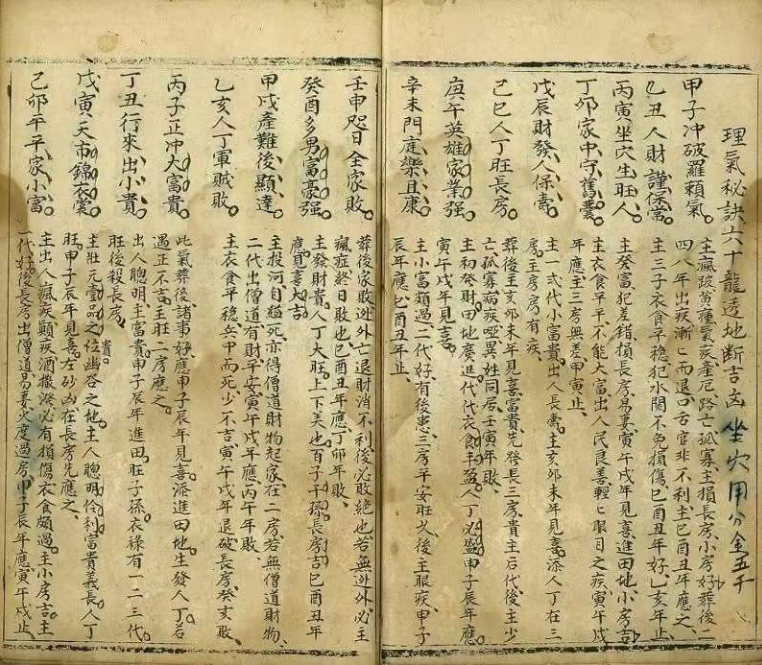 理氣秘訣六十龍透地断吉凶坐穴用分金五千
甲子冲破羅賴氣。
主瘋跛黃瘇氣疾產厄路亡孤寡主損長房小房好葬後二
四八年出疾漸亡而退口舌官非不利主巳酉丑年應之、
乙丑人財謹保富。
主三子衣食平穩犯水関不免損傷巳酉丑年好乙亥年止、
丙寅坐穴生旺人。
主癸富犯差錯損長房易妻寅午戌年見喜進田地小房吉
丁卯家中守舊豊
主衣食平平、不能大富出人民良善輕亡眼目之疾寅午戌
年應主三房無差甲寅止、
戊辰財發人保壽。
主一弍代小富貴。出人長壽。主亥卯未年見喜添人丁在三
房。主房房有疾、
己巳人丁旺長房。
葬後主亥卯未年見喜富貴先發長三房貴主后代後主少
亡孤寡病疾啞異姓同居壬寅年敗、
庚午英雄家業强
主初發財田地廣進代代衣食丰盈。人丁必盛申子辰年應
寅午戌年見喜。
辛未門庭樂且康
主小富頗過二代好有後患三房平安旺火後主眼疾申子
辰年應巳酉丑年止、
壬申咫日全家敗
葬後家敗迯外亡退財消不利後必敗絕也若無迯外必主
瘋症終日敗也巳酉丑年應丁卯年敗、
癸酉多男富豪强
主發財貴。人丁大旺上下美也百子千孫長房吉巳酉丑年
應見喜大吉
甲戌產難後顯達
主投河自縊死亦得僧道財物起家在二房若無僧道財物、
二代出僧道有財平安寅午戌年應丙午年敗、
乙亥人丁軍賊敗
主衣食平穩兵甲而死少不吉寅午戌年退破長房癸亥敗、
丙子正冲大富貴
此氣葬後諸事好應申子辰年見喜添進田地生發人丁若
遇正不吉主旺二房應之。
丁丑行來出小貴
出人聰明主富貴申子辰年進田。旺子孫衣祿有一二三代。
旺後殺長房、
戊寅天市錦衣裳
主壯元壹品之貴位幽谷之地。主人聰明伶俐富貴義長人丁
旺。申子辰年見喜左砂凶在長房先應之、
己卯平平家小富
主出人瘋疾顕疾酒撒潑必有損傷衣食頗過。主小房吉主
一代好後長房出僧道易妻火度過房、申子辰年應寅午戌止